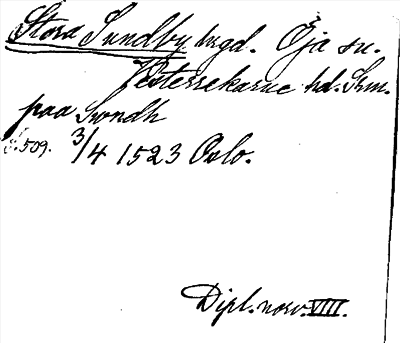 Stora Sundby hrgd. Öja sn.
Vesterrekarne hd. Srm.
paa Swndh
s. 509. 3/4 1523 Oslo.
Dipl. norv. VIII.